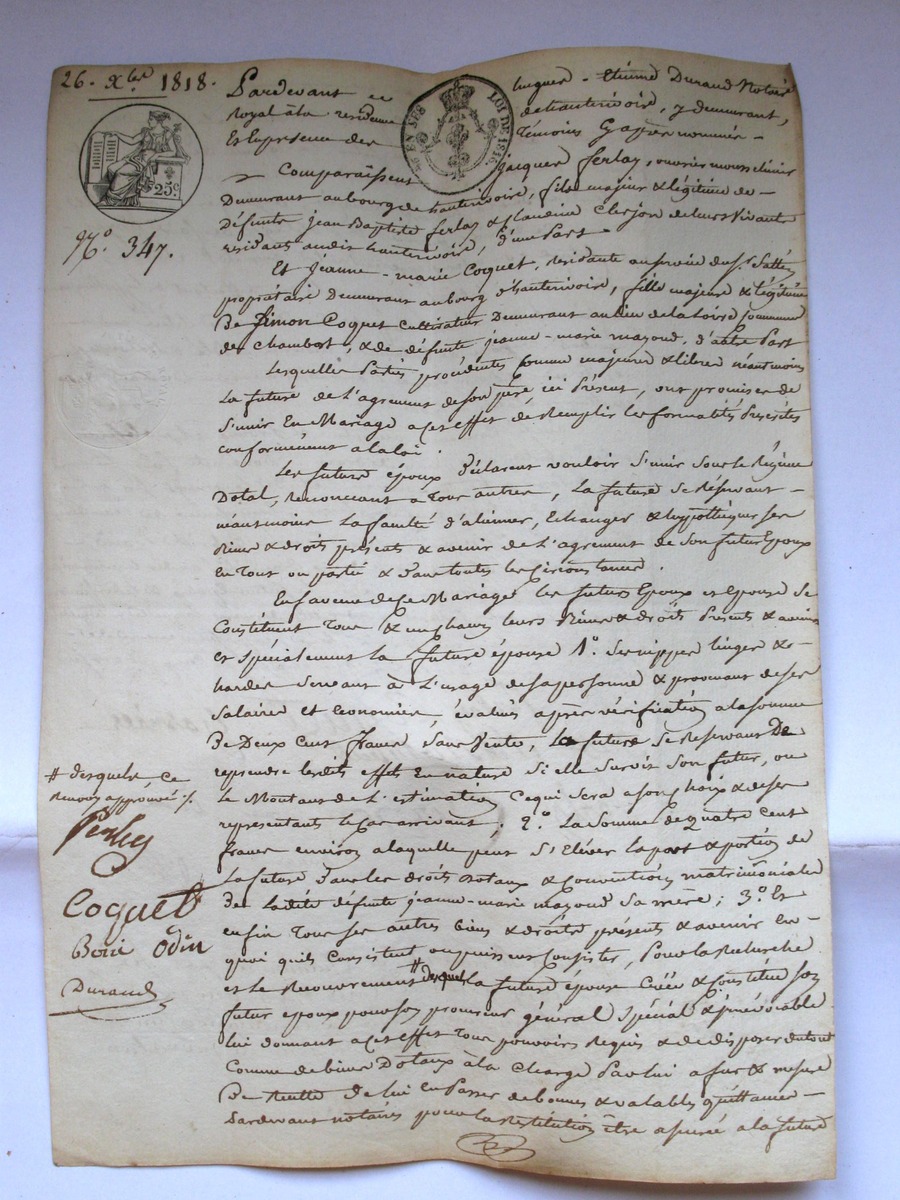 26. Xbre 1818.
25c
LOI DE 1816.
No. 347.
Pardevant Me Jacques - Etienne Durand Notaire
Royal à la residence de hauterivoire, y demeurant,
Et En presence des Témoins Cy après nommés -
Comparaissent Jacques ferlay, ouvrier mousselinier
Demeurant au bourg de hauterivoire, fils majeur & légitime de -
défunts Jean Baptiste ferlay & Claudine Clerjon de leurs Vivants
residants audit hauterivoire, d'une Part -
Et Jeanne - marie Coquet, residante au service du Sr.
propriétaire Demeurant au bourg d'hauterivoire, fille majeure & légitime
De Simon Coquet Cultivateur Demeurant au lieu de la Loire Commune
de Chambost, & de défunte jeanne-marie mazond, d'autre Part
Lesquelles Parties procédantes Comme majeures & libres néantmoins
La future de L'agrement de son père ici Présent, ont promis de
S'unir En Mariage à cet effet de Remplir les formalités Prescrites
conformément à la loi.
Les futurs époux Déclarent vouloir S'unir Sous le Régime
Dotal, renonçant à Tous autres, La future Se Réservant -
néantmoins La faculté d'aliéner, Echanger & hypothéquer ses
Biens & droits présents & avenir de L'agrement de Son futur Epoux
En Tout ou partie & Dans toutes les Circonstances.
En faveur de Ce Mariage les futurs Epoux et Epouse Se
Constituent Tous & un chacun leurs Biens & droits Présents & avenir
et Spécialement La future épouse 1o. Ses nippes linges & -
hardes Servant à L'usage de sa personne & provenant de ses
Salaires et Economies, évalués après vérification à la somme
De Deux Cent francs Sans Vente, La future Se Réservant De
reprendre lesdits effets En nature Si elle Survit Son futur, ou
Le Montant de L'estimation Ce qui Sera a son choix & de ses
représentants le Cas arrivant; 2o. La Somme de quatre Cent
francs environ à laquelle peut S'Elever la part & portion de
La future Dans les droits Dotaux & Conventions matrimoniales
De Ladite défunte jeanne-marie mazond Sa mère; 3o. Et
enfin Tous Ses autres biens & droits présents & avenir En -
quoi qu'ils Consistent ou puissent Consister, Pour la Recherche
et le Recouvrement # desquels la future épouse Crée & Constitue son
futur epoux pour son procureur général Spécial & irrévocable
lui donnant à cet effet Tous pouvoirs Requis & de disposer du tout
Comme de biens Dotaux à la Charge Par lui a fur & mesure
De Recette de lui En Passer de bonnes & valables quittances -
Pardevant notaires pour la Restitution être assurée à la future
# desquels Ce
Renvoi approuvé ./.
ferlay
Coquet
Odin
Durand